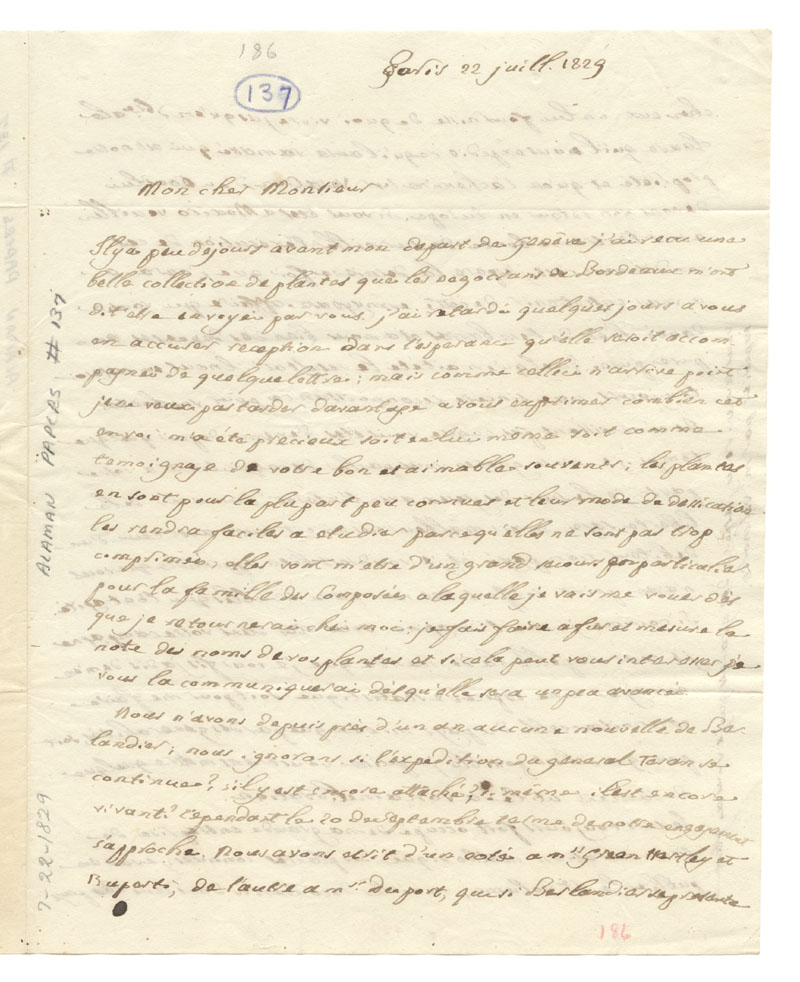 186
137
Paris 22 juill. 1829
Mon cher Monsieur
Il y a peu de jours avant mon depart de Genève j'ai recu une
belle collection de plantes que les negocians de Bordeaux m'ont
dit etre envoyée par vous. j'ai retardé quelques jours a vous
en accuser reception dans l'esperance qu'elle seroit accom
pagnée de quelque lettre; mais comme celle ci n'arrive point
je ne veux pas tarder davantage a vous exprimer combien cet
envoi m'a été precieux soit en lui même soit comme
temoignage de votre bon et aimable souvenir; les plantes
en sont pour la plupart peu connues et leur mode de dessication
les rendra faciles a etudier parcequ'elles ne sont pas trop
comprimées, elles vont m'etre d'un grand secours en particulier
pour la famille des Composées a laquelle je vais me vouer dès
que je retournerai chez moi. je fais faire a fur et mesure la
note des noms de vos plantes et si cela peut vous interesser je
vous la communiquerai dès qu'elle sera un peu avancée.
Nous n'avons depuis près d'un an aucune nouvelle de Ber
landier; nous ignorons si l'expedition du general Teran se
continue? s'il y est encore attaché? si même il est encore
vivant? cependant le 20 de septembre terme de notre engagement
s'approche. Nous avons ecrit d'un coté a mrs Green Hartley et
Ruperti, de l'autre a mr. Duport, que si Berlandier se presente
ALAMAN PAPERS # 137
7-22-1829
186